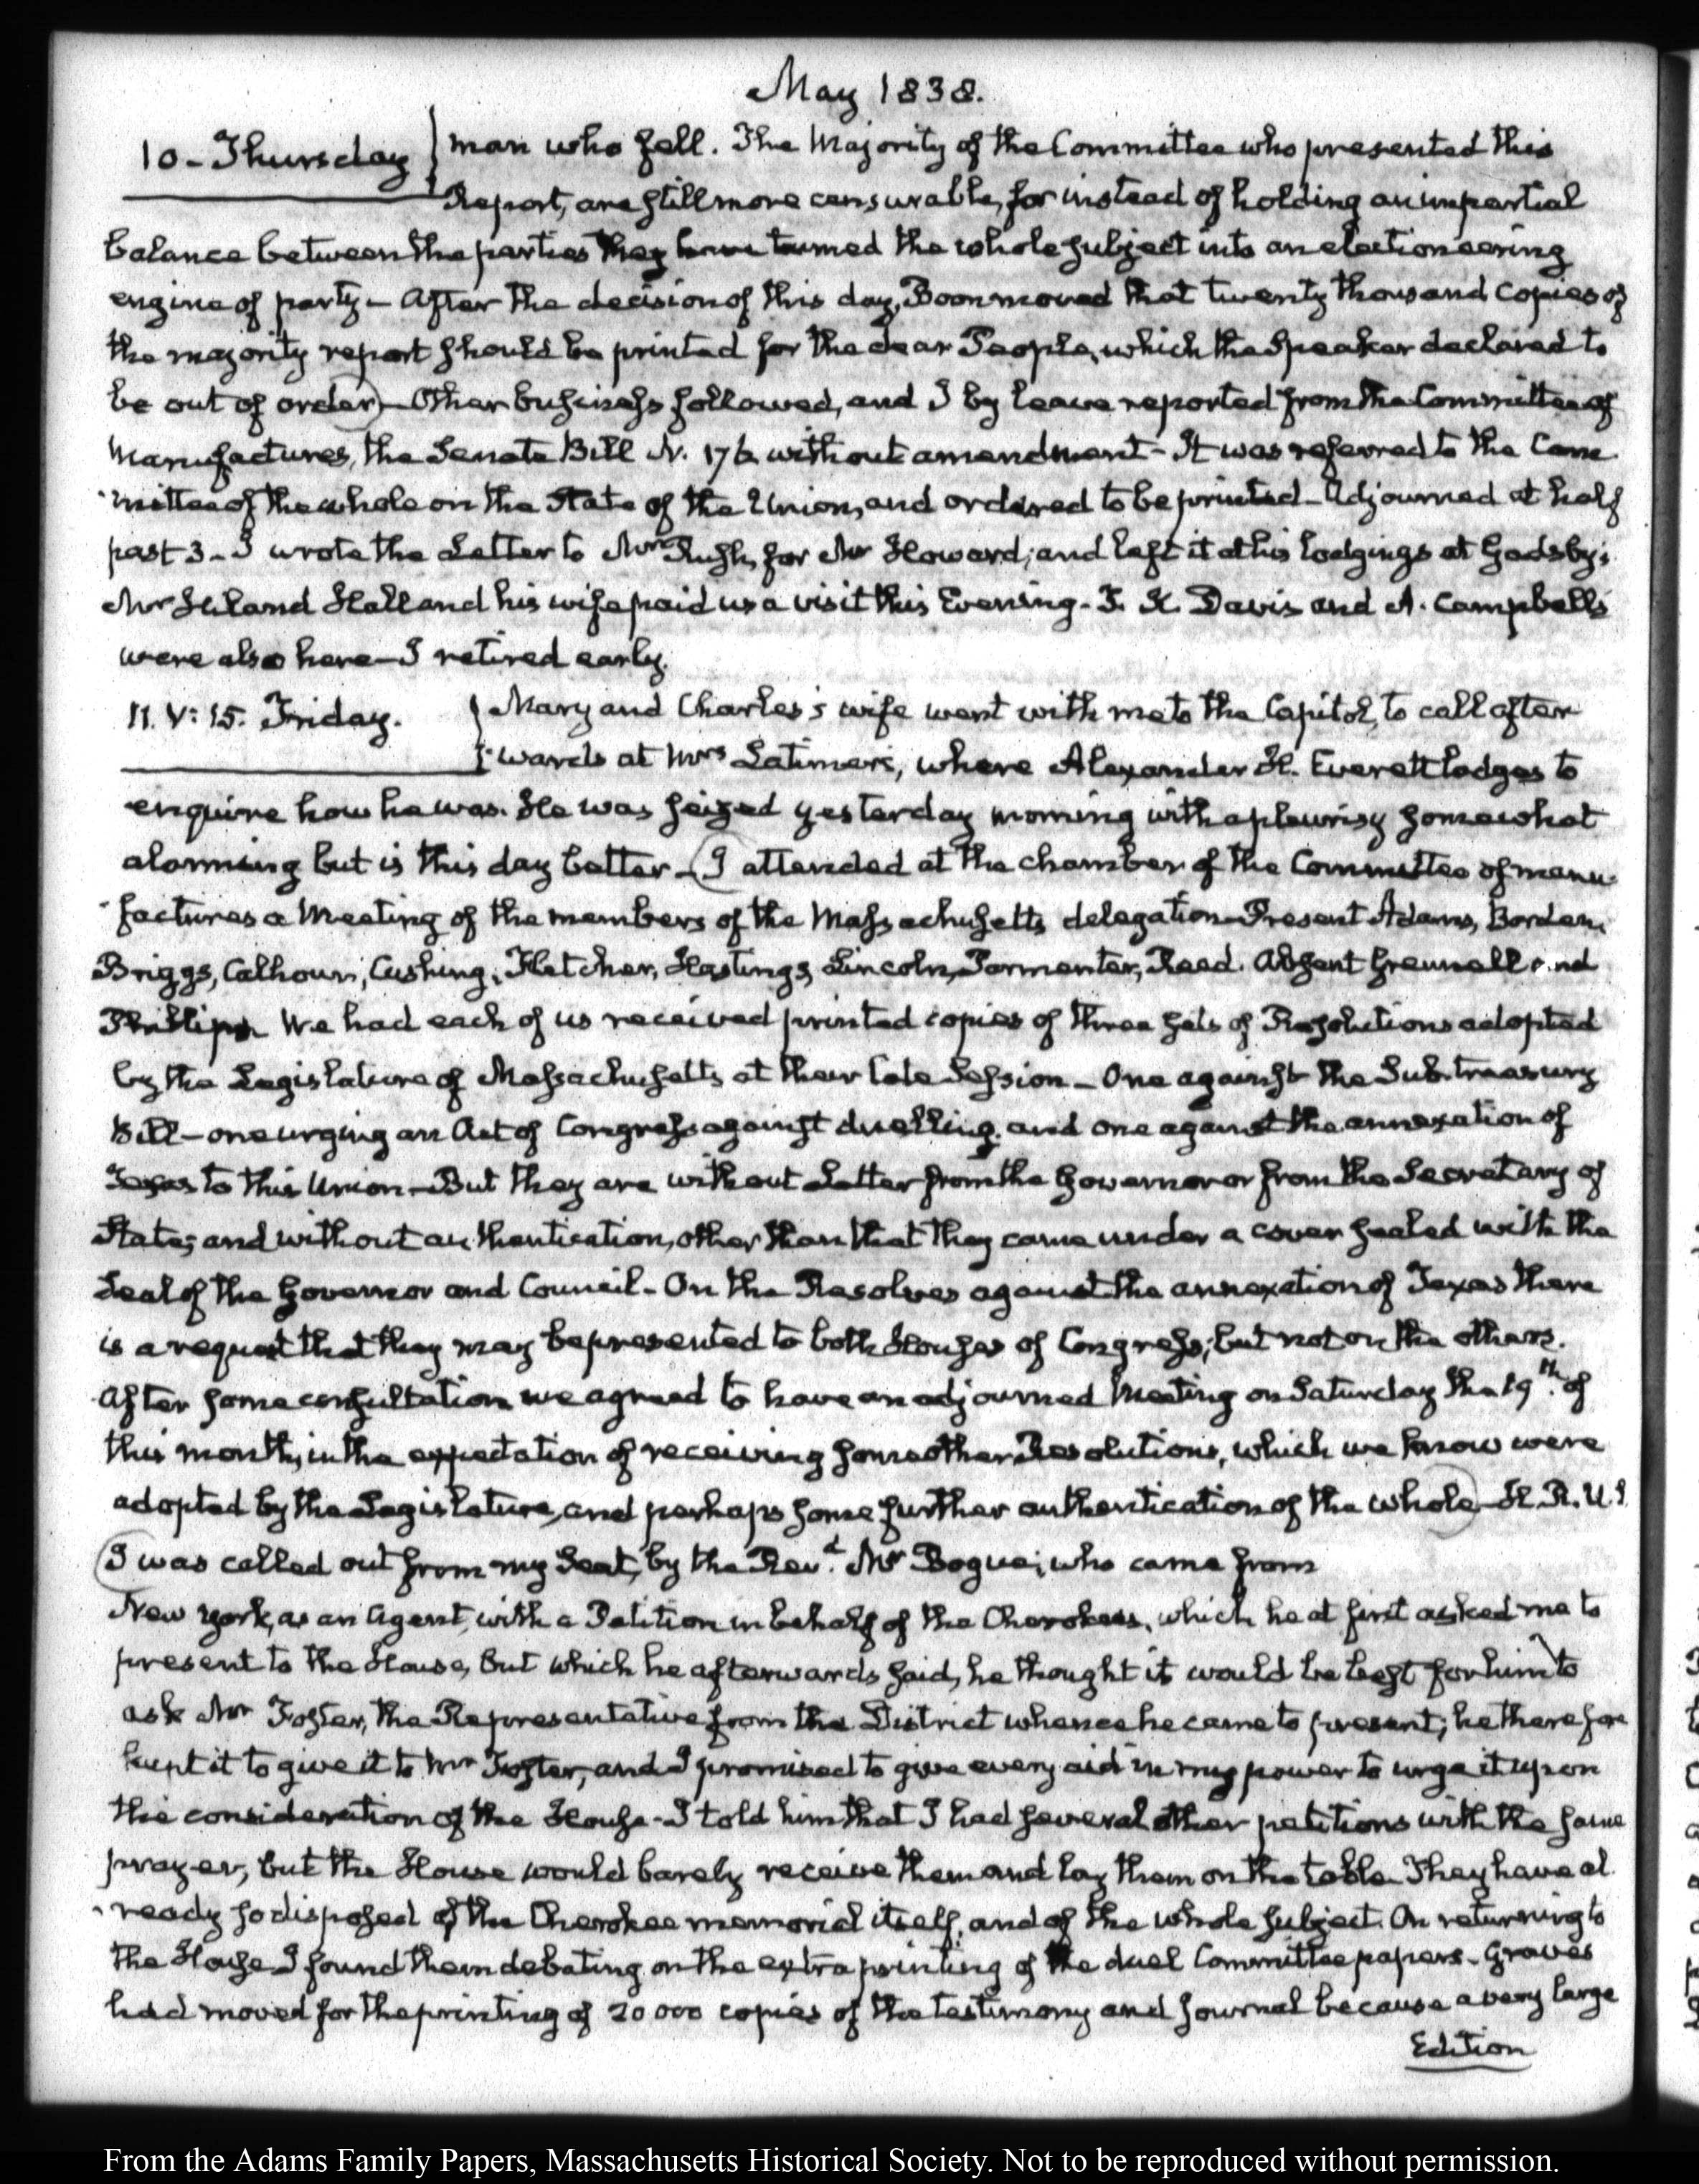 May 1838.
10 - Thursday } man who fell. The Majority of the Committee who presented this
Report, are still more censurable, for instead of holding an impartial
balance between the parties they have turned the whole subject into an electioneering
engine of party - After the decision of this day, Boon moved that twenty thousand copies of
the majority report should be printed for the dear People, which the Speaker declared to
be out of order) - Other business followed, and I by leave reported from the Committee of
Manufactures, the Senate Bill N. 176 without amendment - It was referred to the Com
mittee of the whole on the State of the Union, and ordered to be printed - Adjourned at half
past 3 - I wrote the Letter to Mr Rush, for Mr Howard; and left it at his lodgings at Gadsby's.
Mr Hiland Hall and his wife paid us a visit this Evening - J. K. Davis and A. Campbells
were also here - I retired early.
11. V: 15. Friday. } Mary and Charles's wife went with me to the Capitol, to call after
wards at Mrs Latimer's, where Alexander H. Everett lodges to
enquire how he was. He was seized yesterday morning with a pleurisy somewhat
alarming but is this day better - (I attended at the chamber of the Committee of manu-
factures a Meeting of the members of the Massachusetts delegation - Present Adams, Borden,
Briggs, Calhoun, Cushing, Fletcher, Hastings, Lincoln, Parmenter, Reed. Absent Grennell and
Phillips. We had each of us received printed copies of three sets of Resolutions adopted
by the Legislature of Massachusetts at their late Session - One against the Sub-treasury
Bill - one urging an Act of Congress against duelling, and one against the annexation of
Texas to this Union - But they are without Letter from the Governor or from the Secretary of
State; and without authentication, other than that they came under a cover sealed with the
Seal of the Governor and Council - On the Resolves against the annexation of Texas there
is a request that they may be presented to both Houses of Congress; but not on the others.
After some consultation we agreed to have an adjourned Meeting on Saturday the 19th. of
this month, in the expectation of receiving some other Resolutions, which we know were
adopted by the Legislature, and perhaps some further authentication of the whole) - H. R. U. S.
(I was called out from my Seat, by the Revd. Mr Bogue; who came from
New York, as an Agent, with a Petition in behalf of the Cherokees, which he at first asked me to
present to the House, but which he afterwards said, he thought it would be best for him to
ask Mr Foster, the Representative from the District whence he came to present; he therefore
kept it to give it to Mr Foster, and I promised to give every aid in my power to urge it upon
the consideration of the House - I told him that I had several other petitions with the same
prayer, but the House would barely receive them and lay them on the table. They have al
ready so disposed of the Cherokee memorial itself, and of the whole subject. On returning to
the House I found them debating on the extra printing of the duel Committee papers - Graves
had moved for the printing of 20 000 copies of the testimony and journal because a very large
Edition
From the Adams Family Papers, Massachusetts Historical Society. Not to be reproduced without permission.